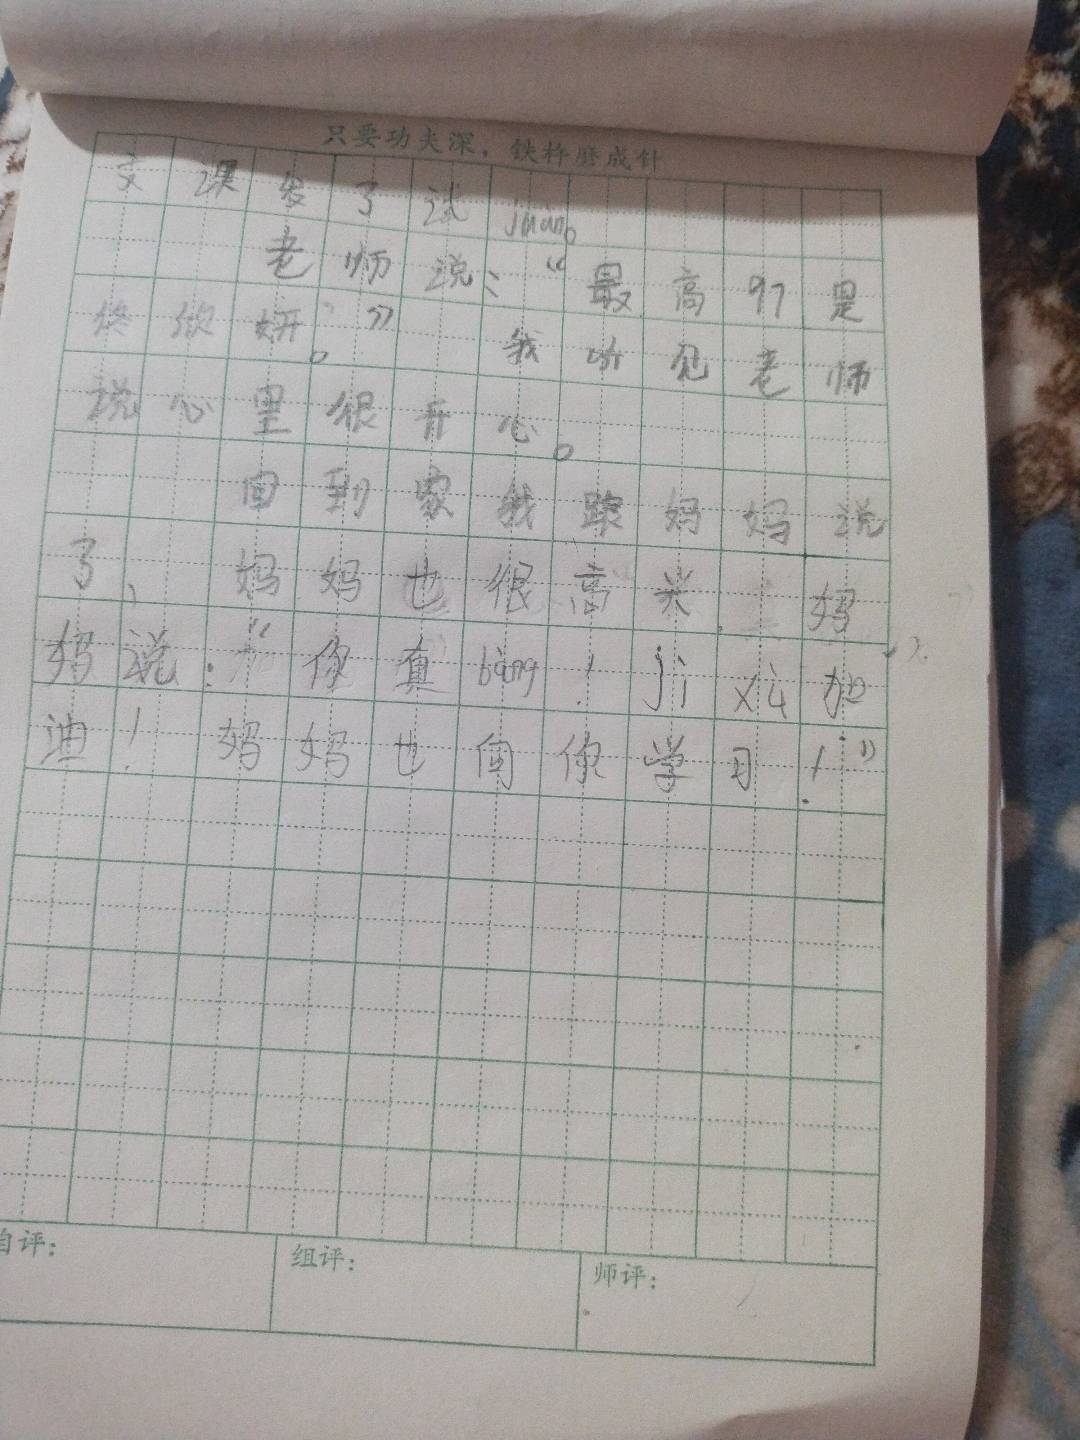 只要功夫深，铁杵磨成针
文课发了试juàn。
老师说：“最高97是
佟欣妍。”我听见老师
说心里很开心。
回到家我跟妈妈说
了，妈妈也很高兴.妈
妈说：“你真bàng！jì xù加
油！妈妈也向你学习！”
自评：
组评：
师评：